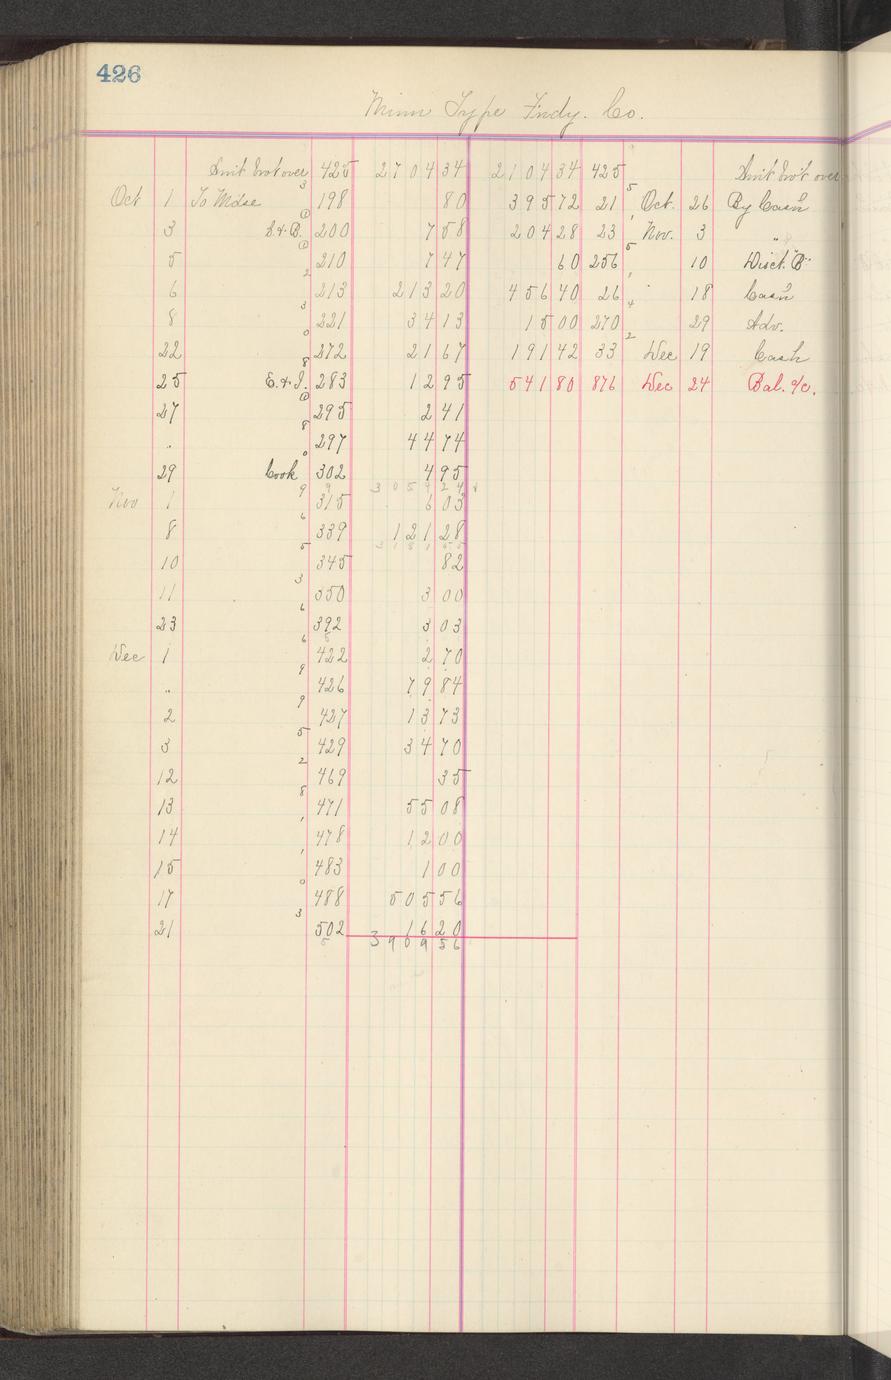 426
Minn Type Fndy. Co.
Amt brot over 425 2704 34 2104 34 425 Amt bro't over
Oct 1 To Mdse 3 198 80 395 72 21 5 Oct. 26 By Cash
3 S.&B. 1 200 7 58 204 28 23 1 Nov. 3 "
5 1 210 7 47 60 256 5 10 Disct. B
6 2 213 213 20 456 40 26 1 " 18 Cash
8 3 221 34 13 15 00 270 4 29 Adv.
22 0 272 21 67 191 42 33 2 Dec 19 Cash
25 E.&I. 8 283 12 95 541 80 876 Dec 24 Bal. o/c.
27 1 295 2 41
" 8 297 44 74
29 Cook 0 302 4 95
9 9 3059 24
Nov 1 315 6 03
8 6 339 121 28
3181 55
10 5 345 82
11 3 350 3 00
23 6 392 3 03
Dec 1 6 422 2 70
" 9 426 79 84
2 9 427 13 73
3 5 429 34 70
12 2 469 35
13 8 471 55 08
14 1 478 12 00
15 1 483 1 00
17 0 488 505 56
21 3 502 16 20
5 3909 56